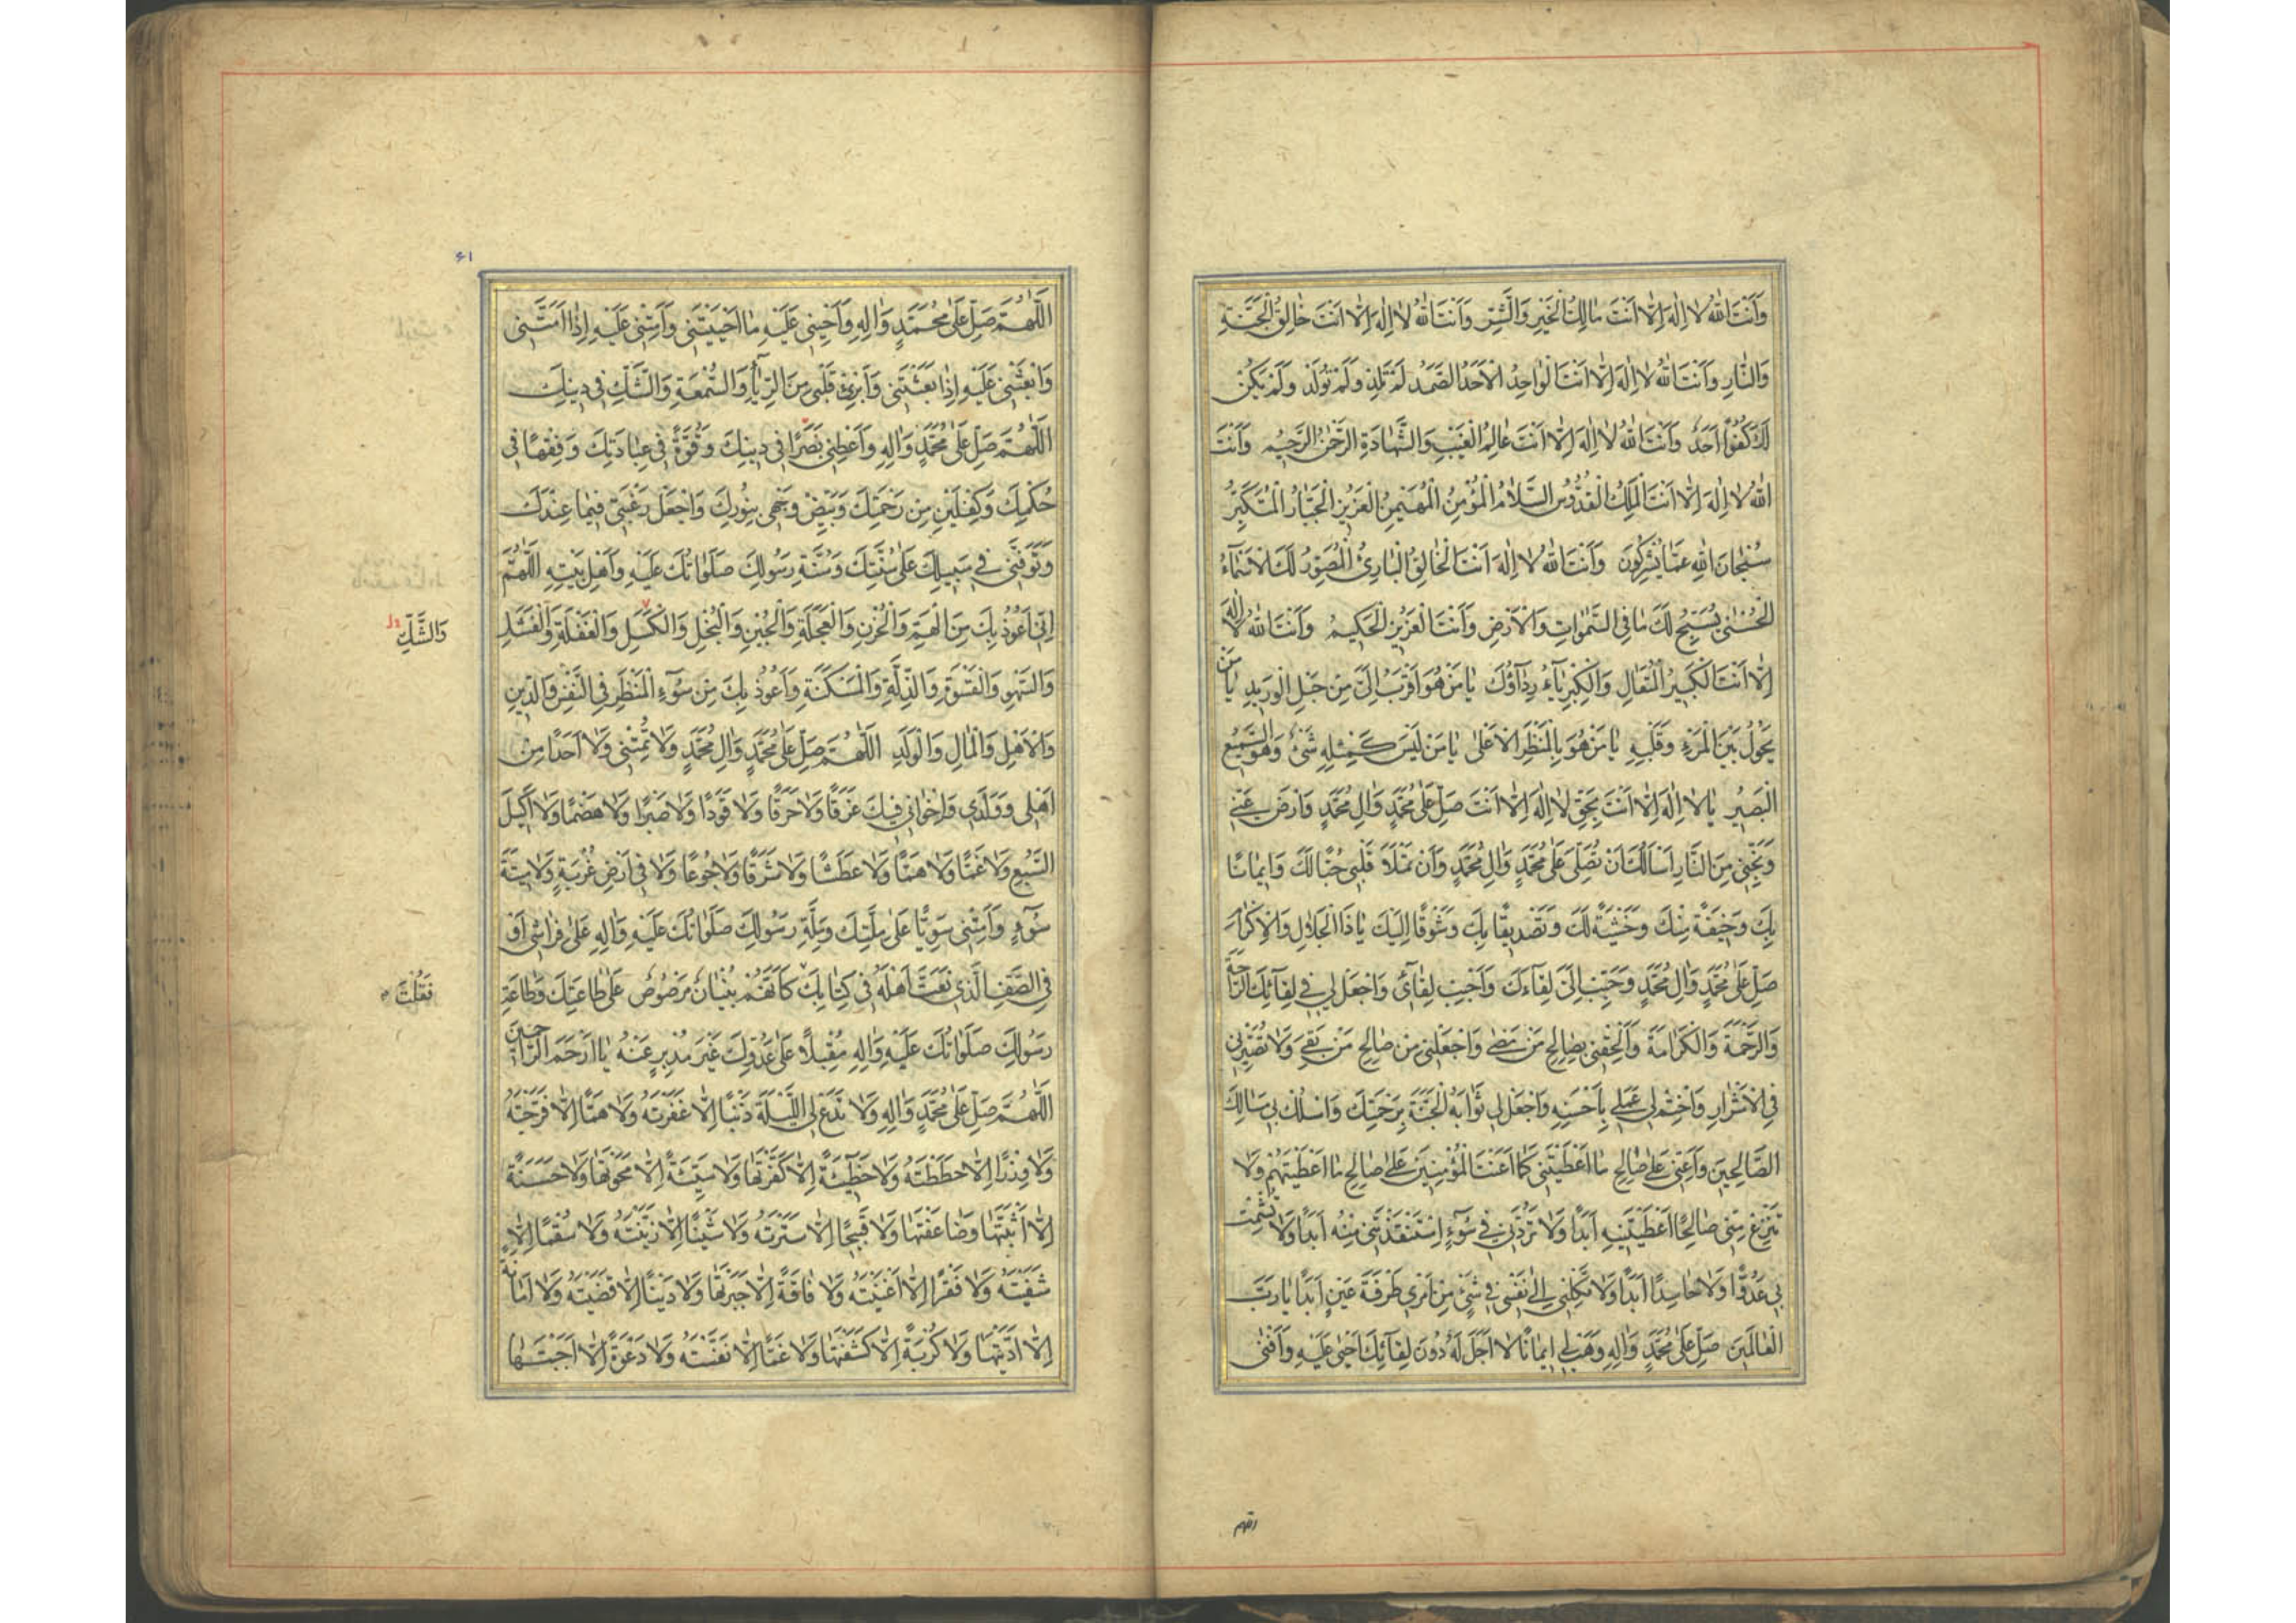 وَاَنْتَ اللهُ لا اِلهَ اِلّا اَنْتَ مالِكُ الْخَيْرِ وَالشَّرِّ وَاَنْتَ اللهُ لا اِلهَ اِلّا اَنْتَ خالِقُ الْجَنَّةِ
وَالنّارِ وَاَنْتَ اللهُ لا اِلهَ اِلّا اَنْتَ الْواحِدُ الْاَحَدُ الصَّمَدُ لَمْ تَلِدْ وَلَمْ تُولَدْ وَلَمْ يَكُنْ
لَكَ كُفُوًا اَحَدٌ وَاَنْتَ اللهُ لا اِلهَ اِلّا اَنْتَ عالِمُ الْغَيْبِ وَالشَّهادَةِ الرَّحْمنُ الرَّحيمُ وَاَنْتَ
اللهُ لا اِلهَ اِلّا اَنْتَ الْمَلِكُ الْقُدُّوسُ السَّلامُ الْمُؤْمِنُ الْمُهَيْمِنُ الْعَزيزُ الْجَبّارُ الْمُتَكَبِّرُ
سُبْحانَ اللهِ عَمّا يُشْرِكُونَ وَاَنْتَ اللهُ لا اِلهَ اَنْتَ الْخالِقُ الْبارِئُ الْمُصَوِّرُ لَكَ الْاَسْماءُ
الْحُسْنى يُسَبِّحُ لَكَ ما فِي السَّمواتِ وَالْاَرْضِ وَاَنْتَ الْعَزيزُ الْحَكيمُ وَاَنْتَ اللهُ لا اِلهَ
اِلّا اَنْتَ الْكَبيرُ الْمُتَعالِ وَالْكِبْرِياءُ رِداؤُكَ يا مَنْ هُوَ اَقْرَبُ اِلَيَّ مِنْ حَبْلِ الْوَريدِ يا مَنْ
يَحُولُ بَيْنَ الْمَرْءِ وَقَلْبِهِ يا مَنْ هُوَ بِالْمَنْظَرِ الْاَعْلى يا مَنْ لَيْسَ كَمِثْلِهِ شَيْءٌ وَهُوَ السَّميعُ
الْبَصيرُ يا لا اِلهَ اِلّا اَنْتَ بِحَقِّ لا اِلهَ اِلّا اَنْتَ صَلِّ عَلى مُحَمَّدٍ وَالِ مُحَمَّدٍ وَارْضَ عَنّي
وَنَجِّني مِنَ النّارِ اَسْاَلُكَ اَنْ تُصَلِّيَ عَلى مُحَمَّدٍ وَالِ مُحَمَّدٍ وَاَنْ تَمْلَاَ قَلْبي حُبًّا لَكَ وَايمانًا
بِكَ وَخيفَةً مِنْكَ وَخَشْيَةً لَكَ وَتَصْديقًا بِكَ وَشَوْقًا اِلَيْكَ يا ذَا الْجَلالِ وَالْاِكْرامِ
صَلِّ عَلى مُحَمَّدٍ وَالِ مُحَمَّدٍ وَحَبِّبْ اِلَيَّ لِقاءَكَ وَاَحْبِبْ لِقائي وَاجْعَلْ لي في لِقائِكَ الرّاحَةَ
وَالرَّحْمَةَ وَالْكَرامَةَ وَاَلْحِقْني بِصالِحِ مَنْ مَضى وَاجْعَلْني مِنْ صالِحِ مَنْ بَقِيَ وَلا تُصَيِّرْني
فِي الْاَشْرارِ وَاخْتِمْ لي عَمَلي بِاَحْسَنِهِ وَاجْعَلْ لي ثَوابَهُ الْجَنَّةَ بِرَحْمَتِكَ وَاسْلُكْ بي مَسالِكَ
الصّالِحينَ وَاَعِنّي عَلى صالِحِ ما اَعْطَيْتَني كَما اَعَنْتَ الْمُؤْمِنينَ عَلى صالِحِ ما اَعْطَيْتَهُمْ وَلا
تَنْزِعْ مِنّي صالِحًا اَعْطَيْتَنيهِ اَبَدًا وَلا تَرُدَّني في سُوءٍ اسْتَنْقَذْتَني مِنْهُ اَبَدًا وَلا تُشْمِتْ
بي عَدُوًّا وَلا حاسِدًا اَبَدًا وَلا تَكِلْني اِلى نَفْسي في شَيْءٍ مِنْ اَمْري طَرْفَةَ عَيْنٍ اَبَدًا يا رَبَّ
الْعالَمينَ صَلِّ عَلى مُحَمَّدٍ وَالِهِ وَهَبْ لي ايمانًا لا اَجَلَ لَهُ دُونَ لِقائِكَ اَحْيى عَلَيْهِ وَاَفْنى
اللهم
۶۱
اَللّهُمَّ صَلِّ عَلى مُحَمَّدٍ وَالِهِ وَاَحْيِني عَلَيْهِ ما اَحْيَيْتَني وَاَمِتْني عَلَيْهِ اِذا اَمَتَّني
وَابْعَثْني عَلَيْهِ اِذا بَعَثْتَني وَاَبْرِئْ قَلْبي مِنَ الرِّياءِ وَالسُّمْعَةِ وَالشَّكِّ في دينِكَ
اَللّهُمَّ صَلِّ عَلى مُحَمَّدٍ وَالِهِ وَاَعْطِني بَصَرًا في دينِكَ وَقُوَّةً في عِبادَتِكَ وَفِقْهًا في
حُكْمِكَ وَكِفْلَيْنِ مِنْ رَحْمَتِكَ وَبَيِّضْ وَجْهي بِنُورِكَ وَاجْعَلْ رَغْبَتي فيما عِنْدَكَ
وَتَوَفَّني في سَبيلِكَ عَلى سُنَّتِكَ وَسُنَّةِ رَسُولِكَ صَلَواتُكَ عَلَيْهِ وَاَهْلِ بَيْتِهِ اَللّهُمَّ
اِنّي اَعُوذُ بِكَ مِنَ الْهَمِّ وَالْحُزْنِ وَالْعَجَلَةِ وَالْجُبْنِ وَالْبُخْلِ وَالْكَسَلِ وَالْغَفْلَةِ وَالْفَشَلِ
وَالشَّكِّ
وَالسَّهْوِ وَالْقَسْوَةِ وَالذِّلَّةِ وَالْمَسْكَنَةِ وَاَعُوذُ بِكَ مِنْ سُوءِ الْمَنْظَرِ فِي النَّفْسِ وَالدّينِ
وَالْاَهْلِ وَالْمالِ وَالْوَلَدِ اَللّهُمَّ صَلِّ عَلى مُحَمَّدٍ وَالِ مُحَمَّدٍ وَلا تُمِتْني وَلا اَحَدًا مِنْ
اَهْلي وَوَلَدي وَاِخْواني فيكَ غَرَقًا وَلا حَرَقًا وَلا قَوَدًا وَلا صَبْرًا وَلا هَضْمًا وَلا اَكيلَ
السَّبُعِ وَلا غَمًّا وَلا هَمًّا وَلا عَطَشًا وَلا شَرَقًا وَلا جُوعًا وَلا في اَرْضِ غُرْبَةٍ وَلا ميتَةَ
سُوءٍ وَاَمِتْني سَوِيًّا عَلى مِلَّتِكَ وَمِلَّةِ رَسُولِكَ صَلَواتُكَ عَلَيْهِ وَالِهِ عَلى فِراشي اَوْ
فِي الصَّفِّ الَّذي نَعَتَّ اَهْلَهُ في كِتابِكَ كَاَنَّهُمْ بُنْيانٌ مَرْصُوصٌ عَلى طاعَتِكَ وَطاعَةِ
فَقُلْتَ
رَسُولِكَ صَلَواتُكَ عَلَيْهِ وَالِهِ مُقْبِلًا عَلى عَدُوِّكَ غَيْرَ مُدْبِرٍ عَنْهُ يا اَرْحَمَ الرّاحِمينَ
اَللّهُمَّ صَلِّ عَلى مُحَمَّدٍ وَالِهِ وَلا تَدَعْ لي اللَّيْلَةَ ذَنْبًا اِلّا غَفَرْتَهُ وَلا هَمًّا اِلّا فَرَّجْتَهُ
وَلا وِزْرًا اِلّا حَطَطْتَهُ وَلا خَطيئَةً اِلّا كَفَّرْتَها وَلا سَيِّئَةً اِلّا مَحَوْتَها وَلا حَسَنَةً
اِلّا اَثْبَتَّها وَضاعَفْتَها وَلا قَبيحًا اِلّا سَتَرْتَهُ وَلا شَيْنًا اِلّا زَيَّنْتَهُ وَلا سُقْمًا اِلّا
شَفَيْتَهُ وَلا فَقْرًا اِلّا اَغْنَيْتَهُ وَلا فاقَةً اِلّا جَبَرْتَها وَلا دَيْنًا اِلّا قَضَيْتَهُ وَلا اَمانَةً
اِلّا اَدَّيْتَها وَلا كُرْبَةً اِلّا كَشَفْتَها وَلا غَمًّا اِلّا نَفَّسْتَهُ وَلا دَعْوَةً اِلّا اَجَبْتَها